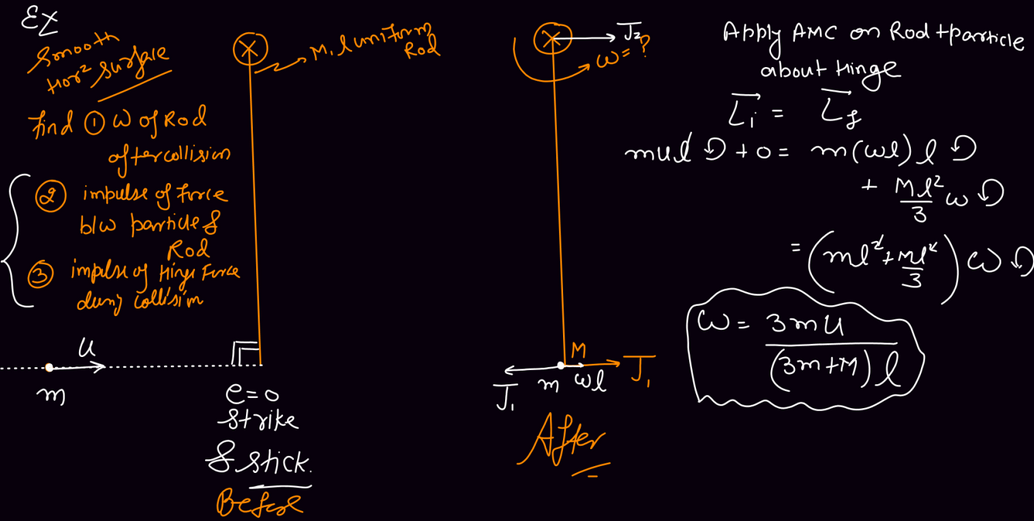 Ex
Smooth
Horz surface
find ① ω of Rod
after collision
② impulse of force
b/w particle &
Rod
③ impulse of Hinge Force
during collision
u
m
e=0
strike
& stick.
Before
M, l uniform
Rod
J₂
ω=?
M
J₁
m
ωl
J₁
After
Apply AMC on Rod + particle
about Hinge
L⃗i = L⃗f
mul ↻ + 0 = m(ωl) l ↻
+ Ml²/3 ω ↻
= (ml² + Ml²/3) ω ↻
ω = 3mu/((3m+M) l)